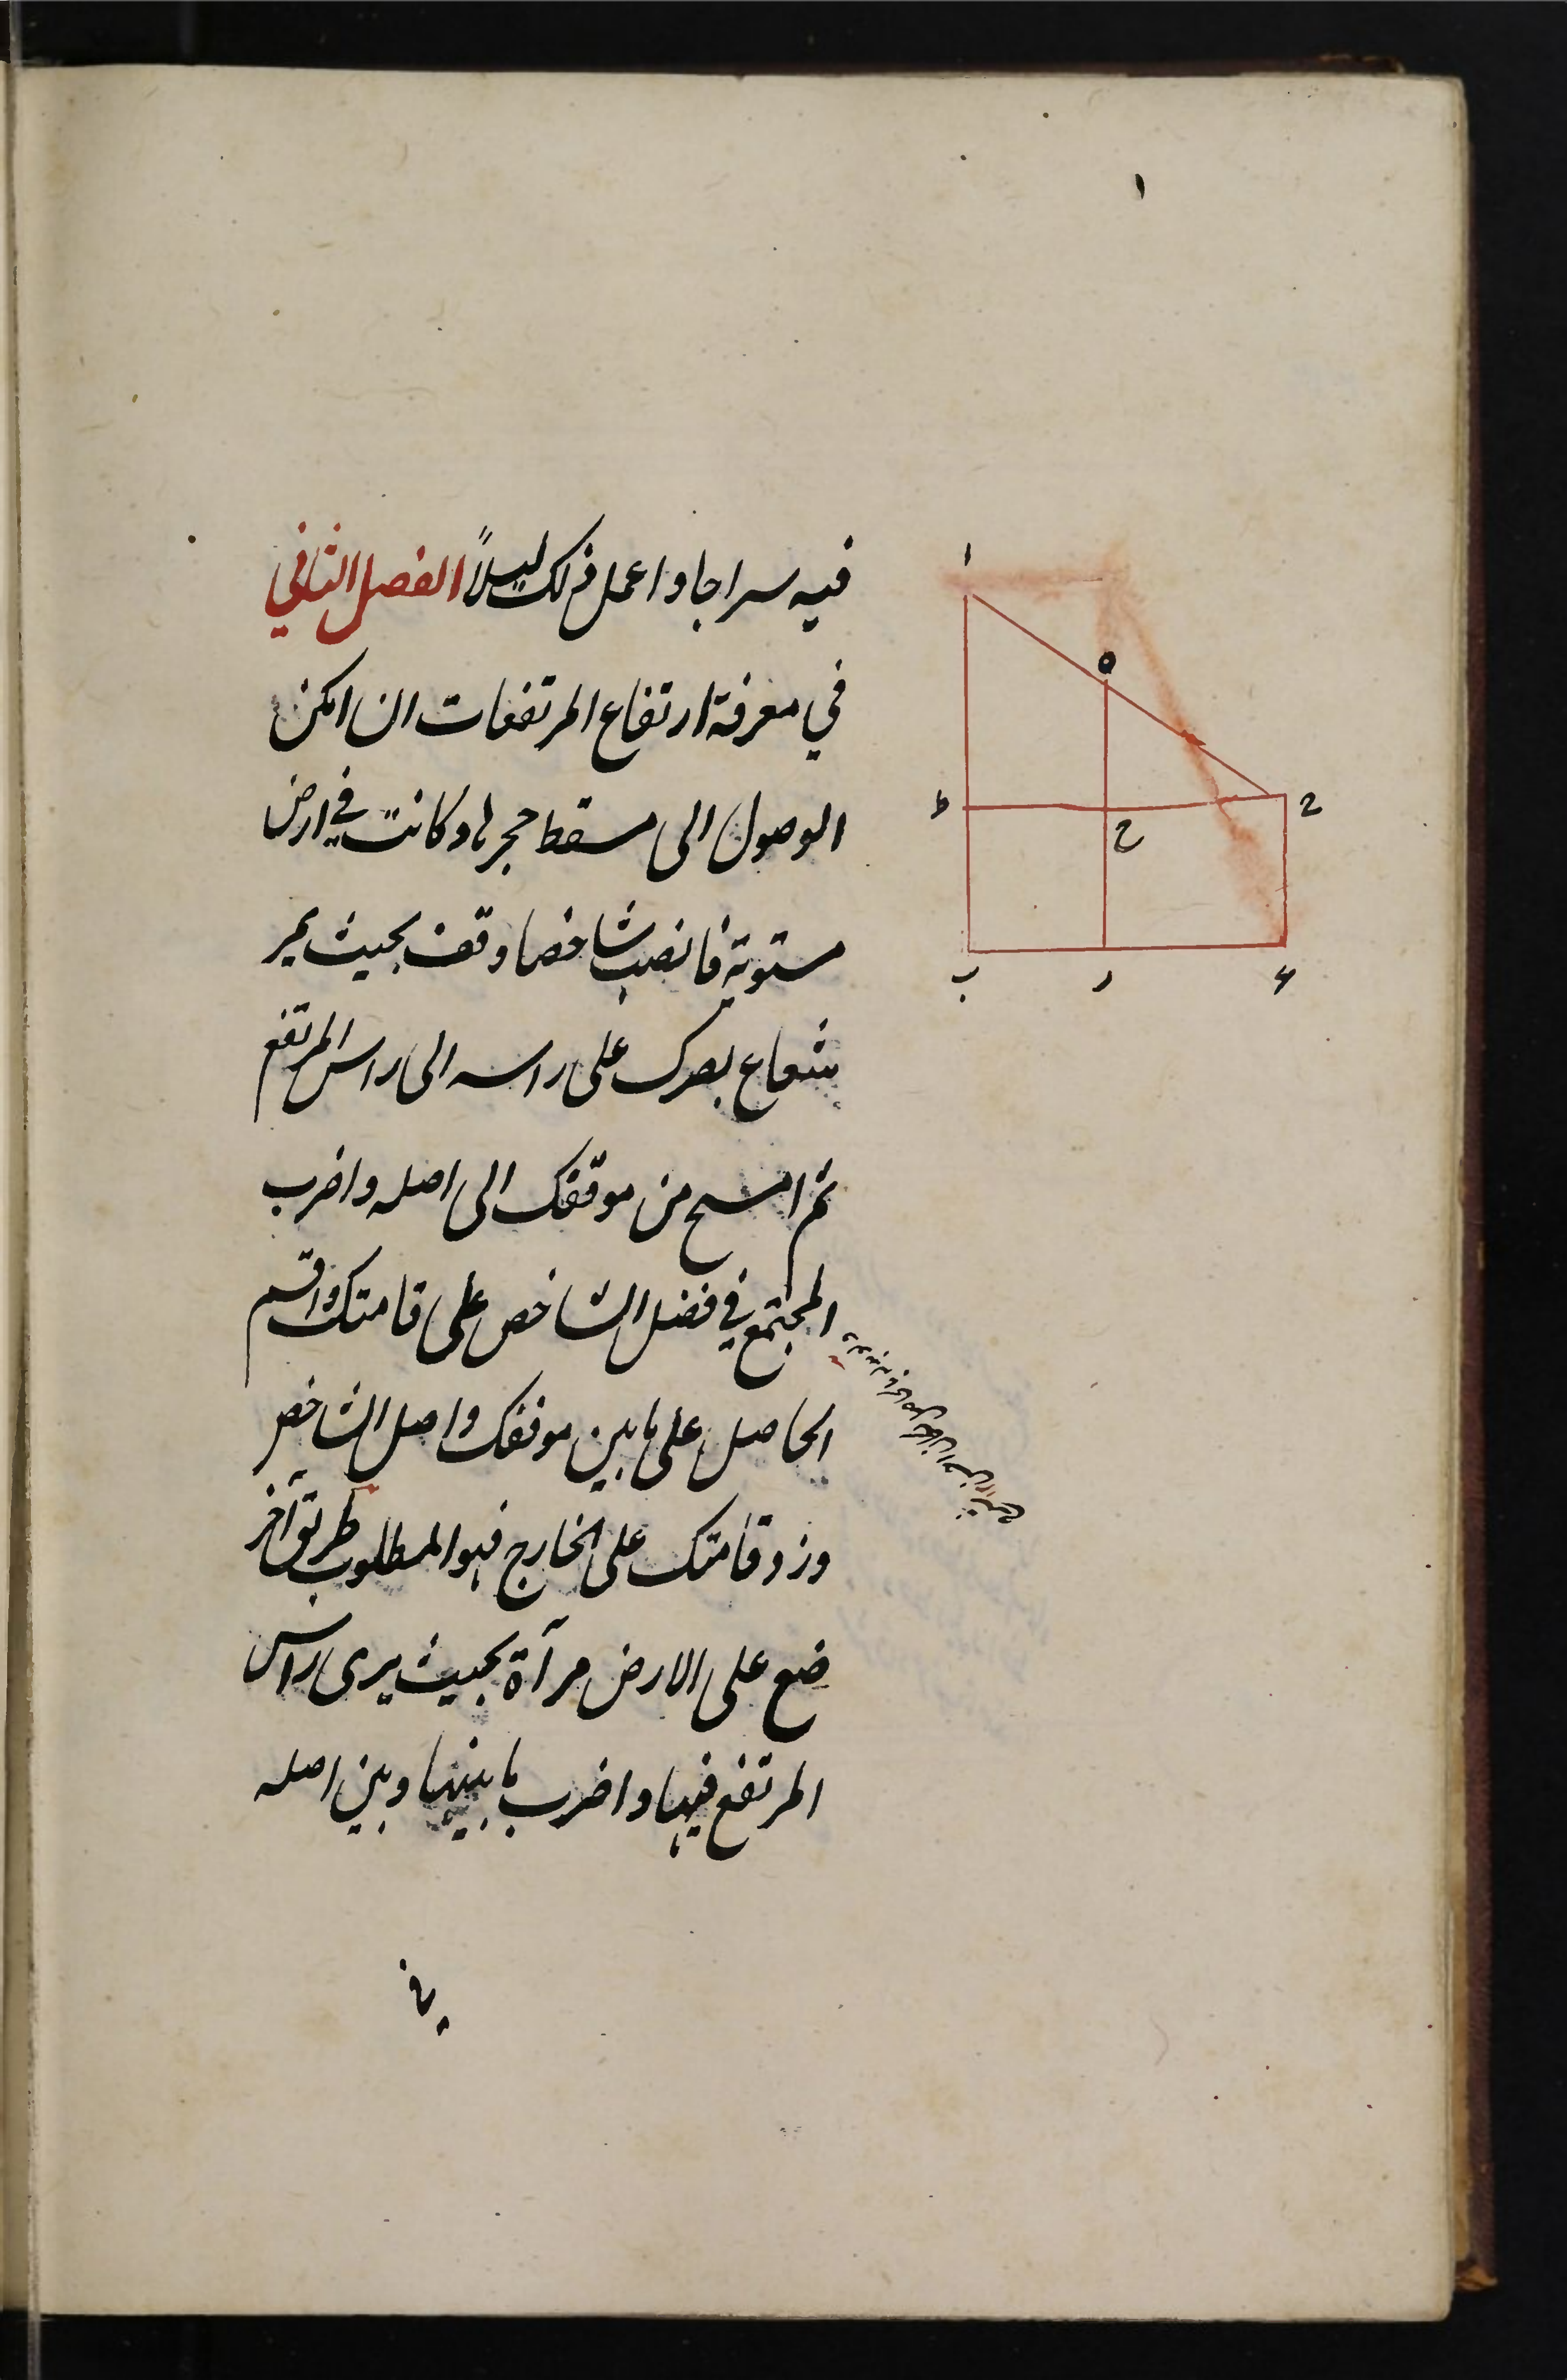 فيه سراجا واعمل ذلك ليلاً الفصل الثاني
في معرفة ارتفاع المرتفعات ان امكن
الوصول الى مسقط حجرها وكانت في ارض
مستوية فانصب شاخصا وقف بحيث يمر
شعاع بصرك على راسه الى راس المرتفع
ثم امسح من موقفك الى اصله واضرب
المجتمع في فضل الشاخص على قامتك واقسم
الحاصل على ما بين موقفك واصل الشاخص
وزد قامتك على الخارج فهو المطلوب طريق آخر
ضع على الارض مرآة بحيث يرى راس
المرتفع فيها واضرب ما بينها وبين اصله
ا
ه
ط
ح
ب
ر